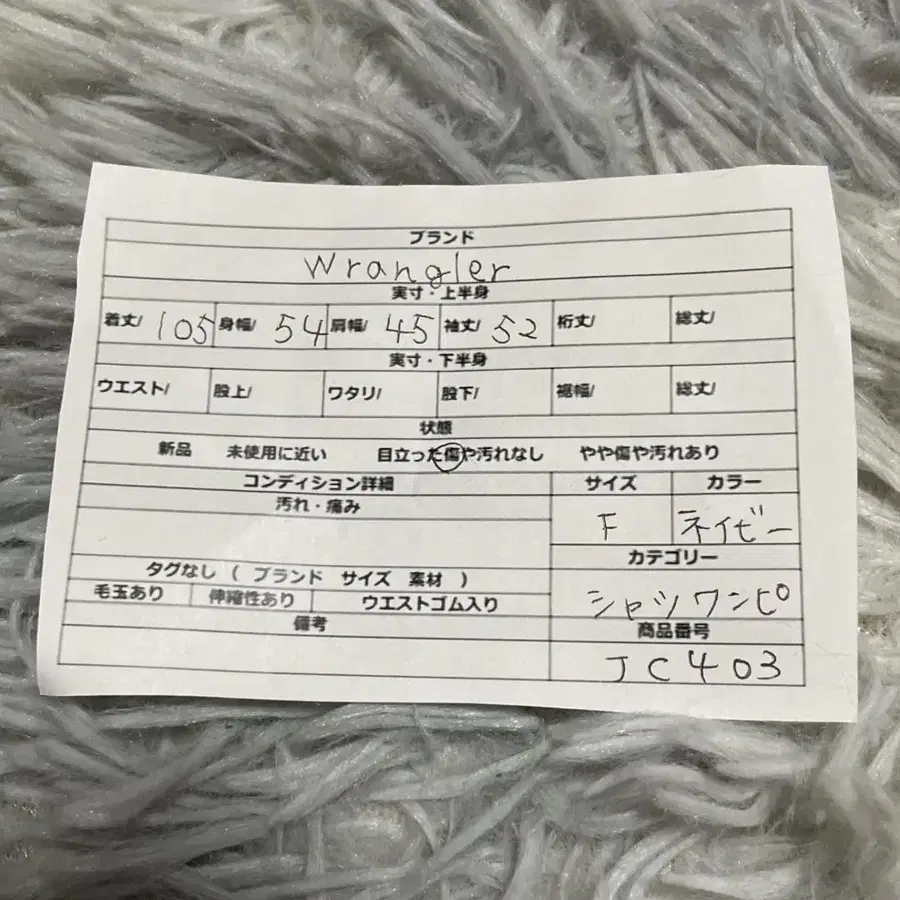 ブランド
Wrangler
実寸・上半身
着丈/ 105 身幅/ 54 肩幅/ 45 袖丈/ 52 裄丈/ 総丈/
実寸・下半身
ウエスト/ 股上/ ワタリ/ 股下/ 裾幅/ 総丈/
状態
新品 未使用に近い 目立った傷や汚れなし やや傷や汚れあり
コンディション詳細 サイズ カラー
汚れ・痛み
F ネイビー
カテゴリー
タグなし ( ブランド サイズ 素材 )
毛玉あり 伸縮性あり ウエストゴム入り
シャツワンピ
備考 商品番号
JC403